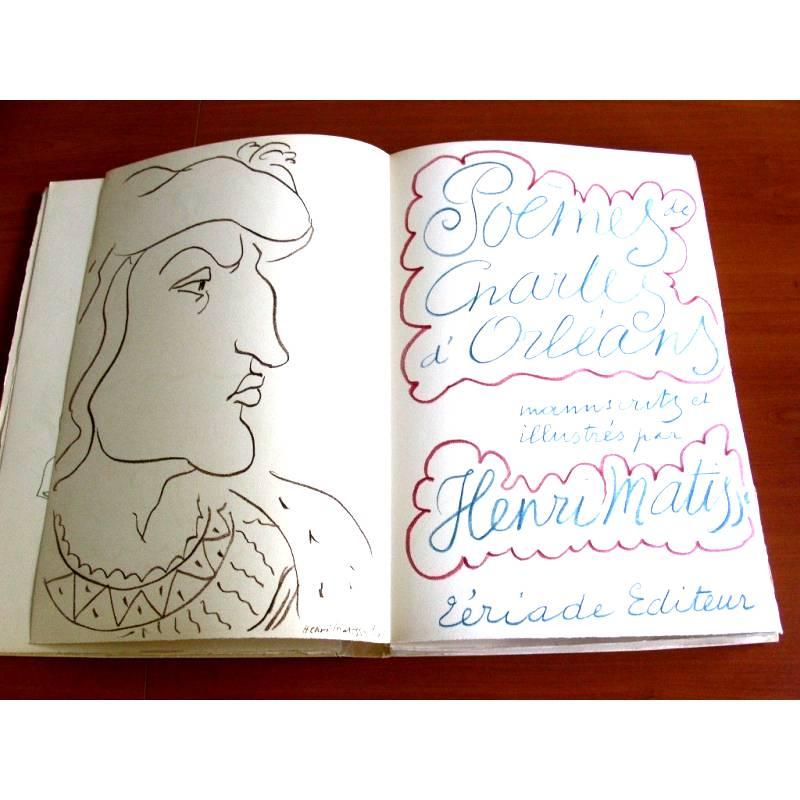 Poèmes de
Charles
d'Orléans
manuscrits et
illustrés par
Henri Matisse
Tériade Editeur
Henri Matisse